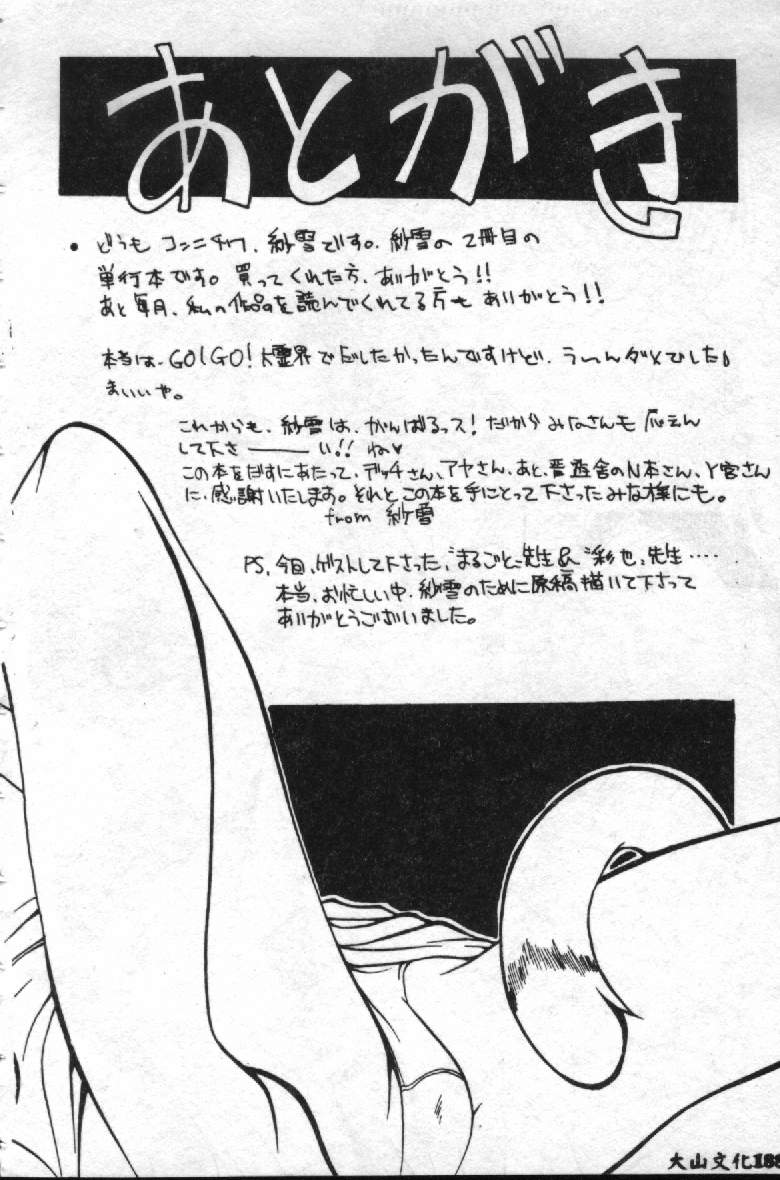 あとがき
• どうも コンニチワ、紗雪です。紗雪の 2冊目の
単行本です。買ってくれた方、ありがとう!!
あと毎月、私の作品を読んでくれてる方も ありがとう!!
本当は、GO!GO!大霊界でだしたかったんですけど、う〜んダメでした。
まぁいいや。
これからも、紗雪は、がんばるっス!だから みなさんも 応えん
して下さ———い!! ね♥
この本をだすにあたって、デッチさん、アヤさん、あと、晋遊舎のN本さん、Y宮さん
に、感謝いたします。それと この本を手にとって下さったみな様にも。
from 紗雪
PS、今回、ゲストして下さった、"まるごと"先生&"彩也"先生····
本当、お忙しい中、紗雪のために原稿描いて下さって
ありがとうございました。
大山文化